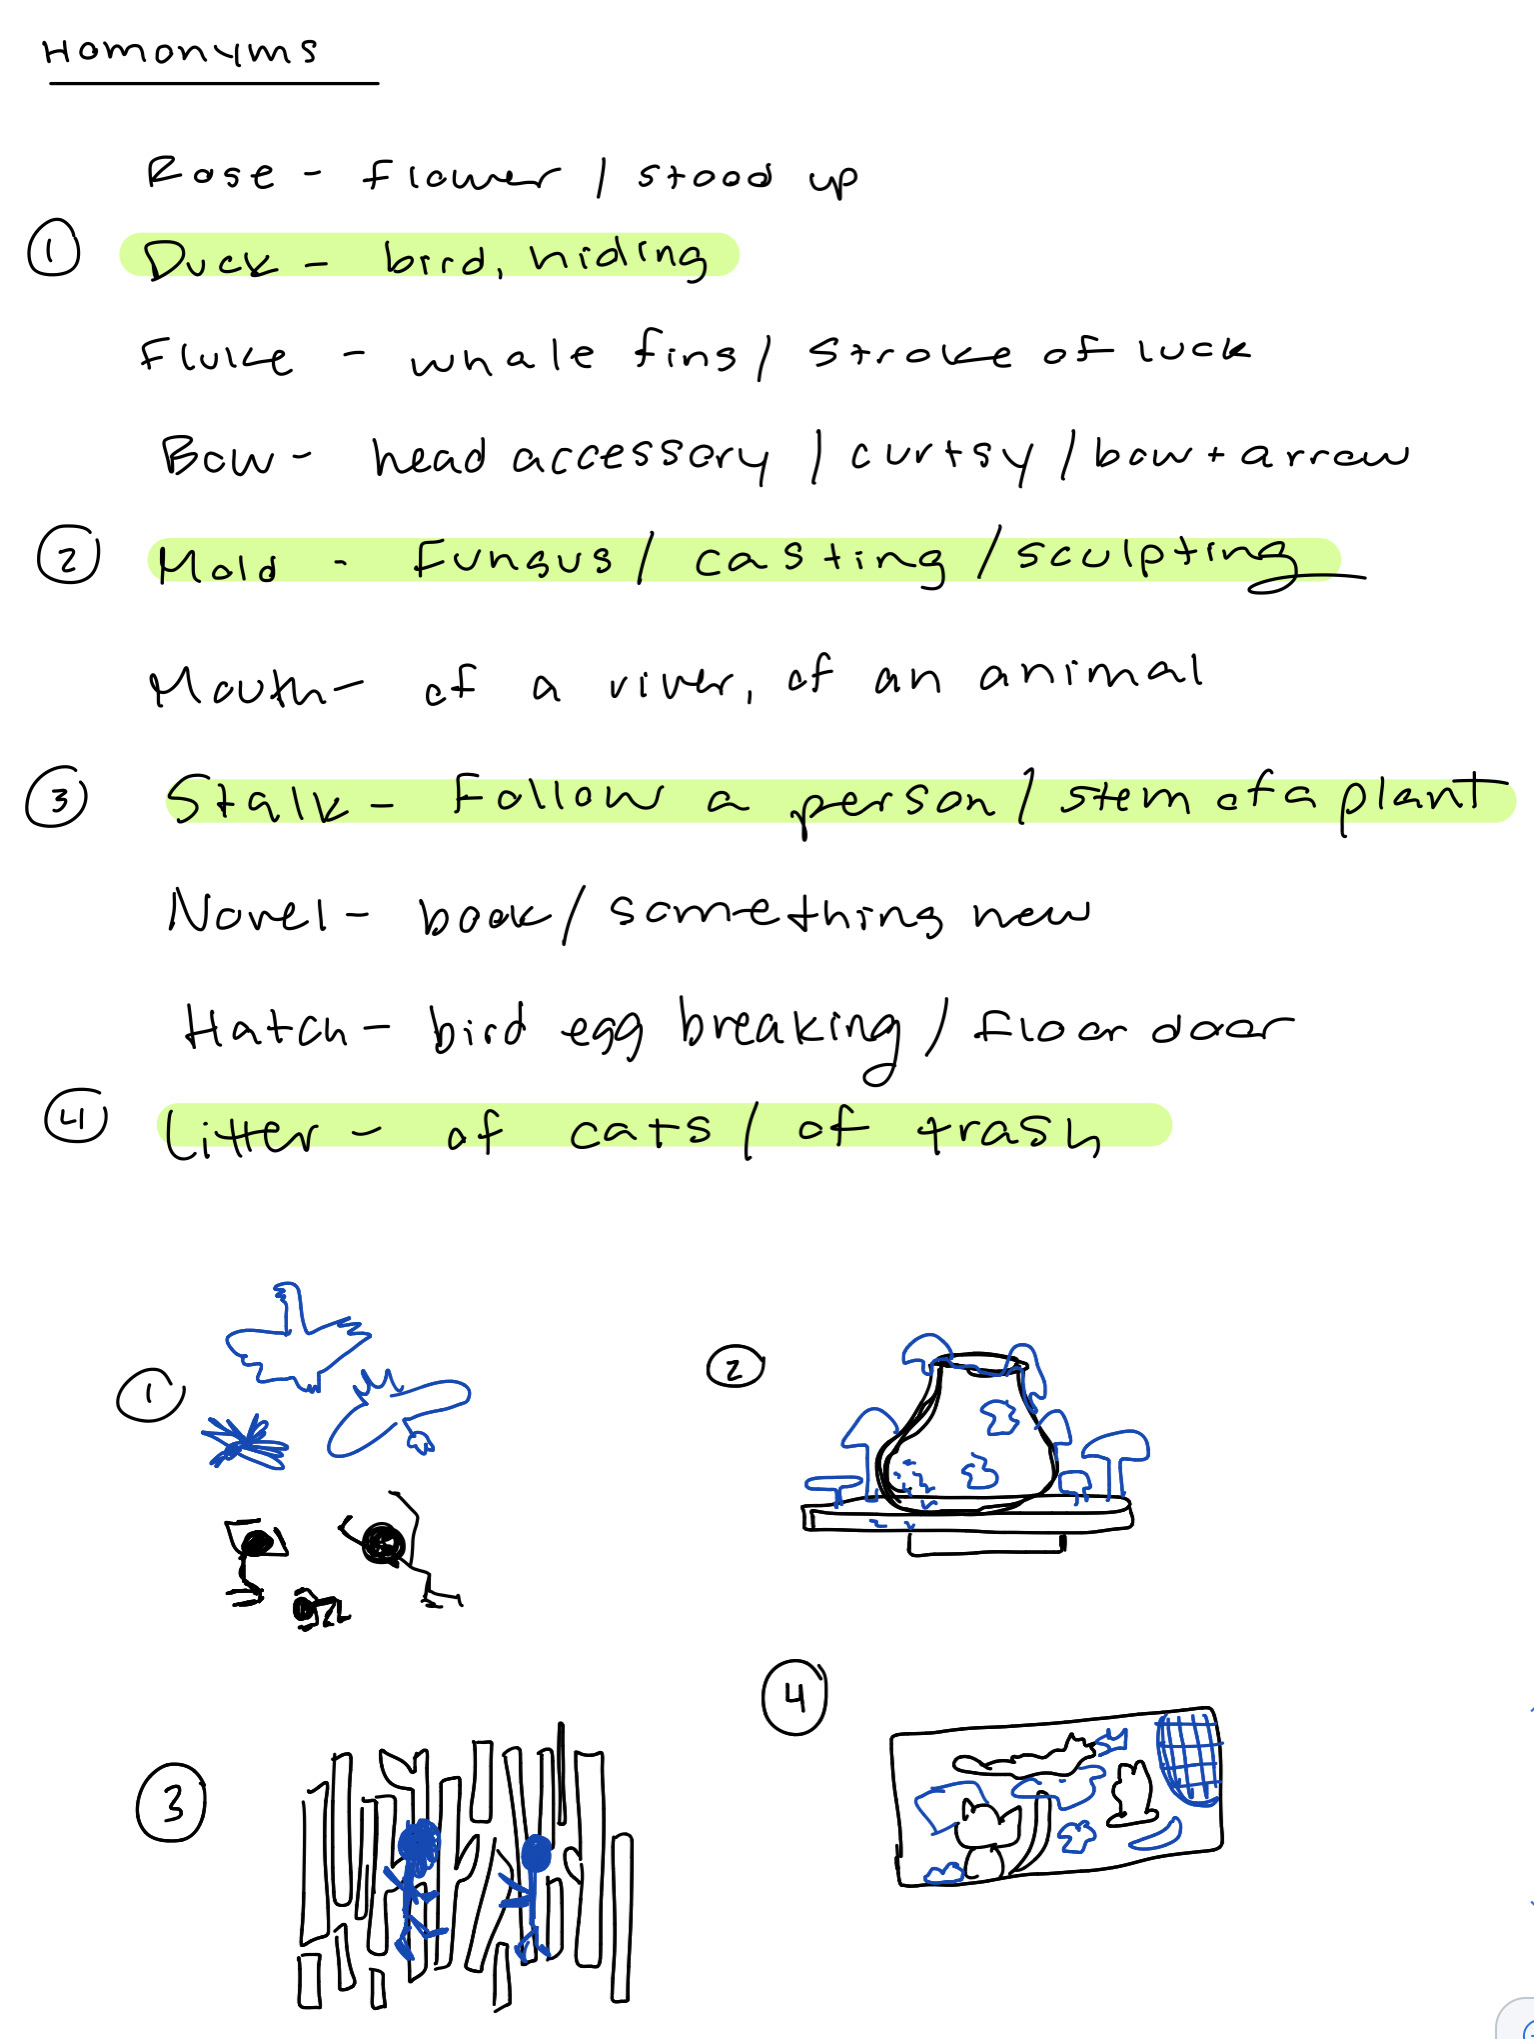 Homonyms
Rose - flower / stood up
① Duck - bird, hiding
Fluke - whale fins / stroke of luck
Bow - head accessory / curtsy / bow + arrow
② Mold - fungus / casting / sculpting
Mouth - of a river, of an animal
③ Stalk - Follow a person / stem of a plant
Novel - book / something new
Hatch - bird egg breaking / floor door
④ Litter - of cats / of trash
①
②
③
④